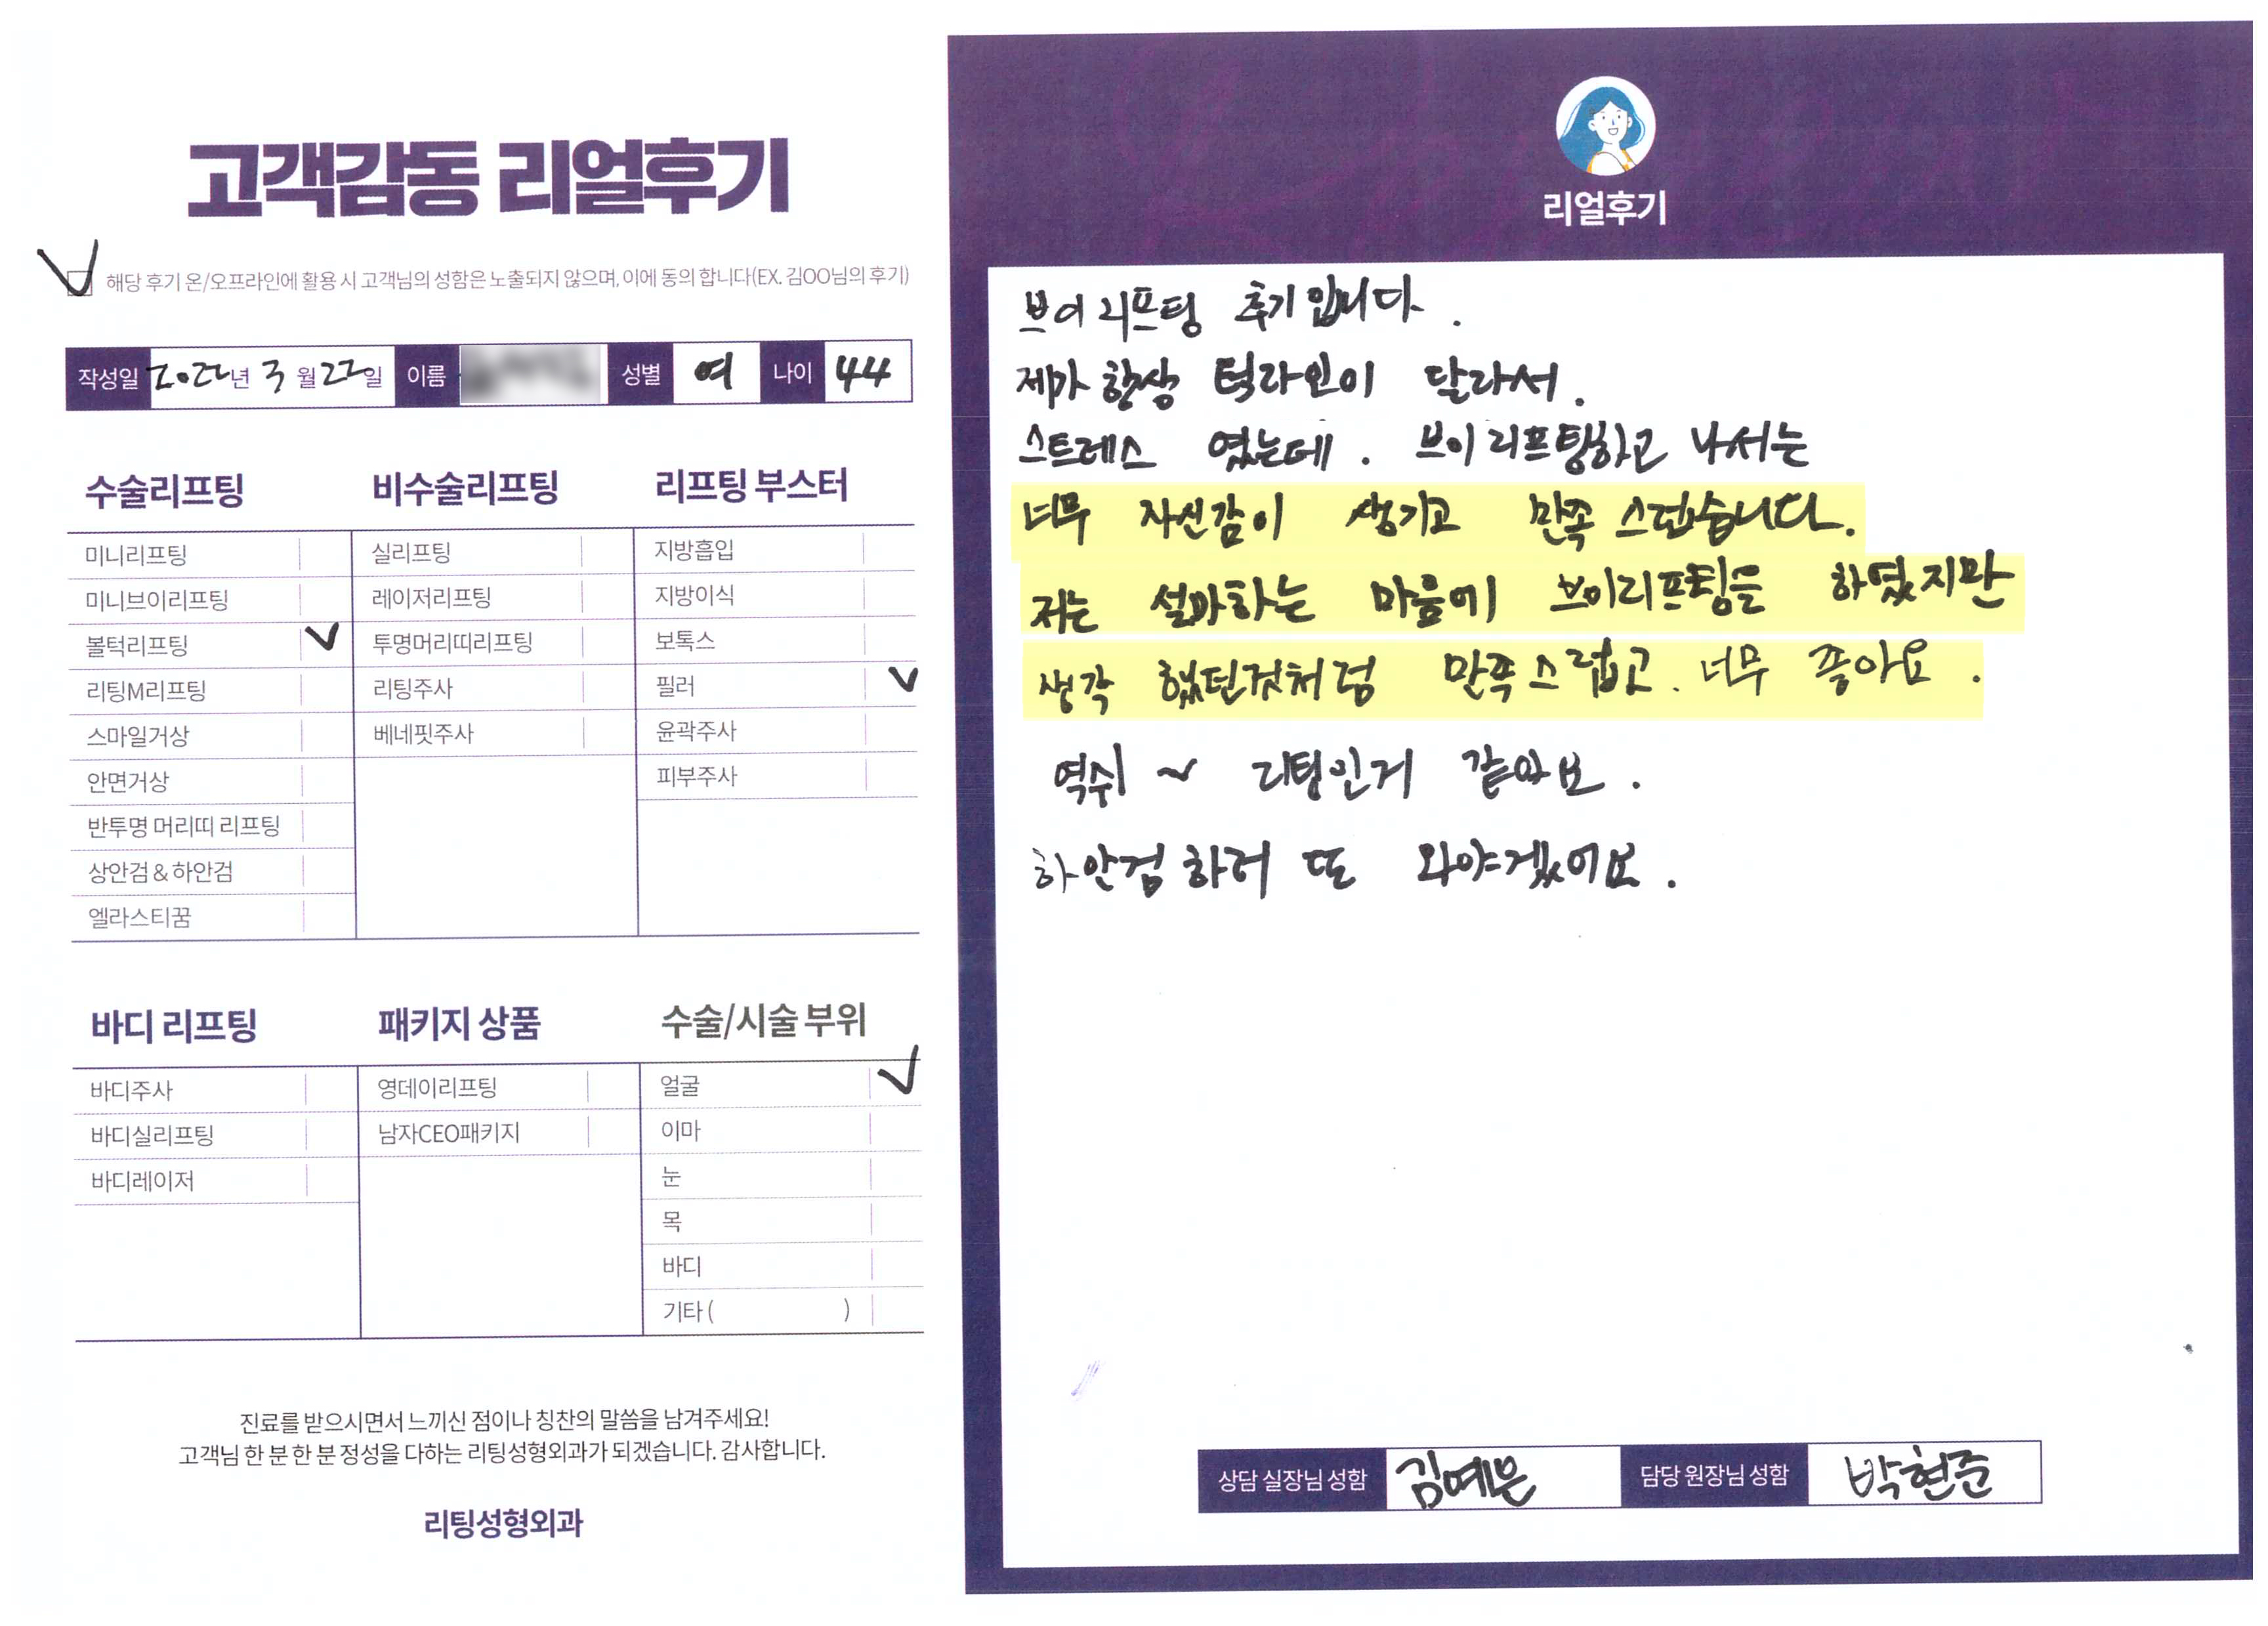 고객감동 리얼후기
해당 후기 온/오프라인에 활용 시 고객님의 성함은 노출되지 않으며, 이에 동의 합니다(EX. 김OO님의 후기)
작성일 2022년 3월 22일 이름 성별 여 나이 44
수술리프팅 비수술리프팅 리프팅 부스터
미니리프팅 실리프팅 지방흡입
미니브이리프팅 레이저리프팅 지방이식
볼턱리프팅 투명머리띠리프팅 보톡스
리팅M리프팅 리팅주사 필러
스마일거상 베네핏주사 윤곽주사
안면거상 피부주사
반투명 머리띠 리프팅
상안검 & 하안검
엘라스티꿈
바디 리프팅 패키지 상품 수술/시술 부위
바디주사 영데이리프팅 얼굴
바디실리프팅 남자CEO패키지 이마
바디레이저 눈
목
바디
기타 ( )
진료를 받으시면서 느끼신 점이나 칭찬의 말씀을 남겨주세요!
고객님 한 분 한 분 정성을 다하는 리팅성형외과가 되겠습니다. 감사합니다.
리팅성형외과
리얼후기
브이리프팅 후기입니다.
제가 항상 턱라인이 달라서.
스트레스 였는데. 브이리프팅하고 나서는
너무 자신감이 생기고 만족스럽습니다.
저는 설마하는 마음에 브이리프팅을 하였지만
생각 했던것처럼 만족스럽고. 너무 좋아요.
역쉬 ~ 리팅인거 같아요.
하안검 하러 또 와야겠어요.
상담 실장님 성함 김예은 담당 원장님 성함 박현준